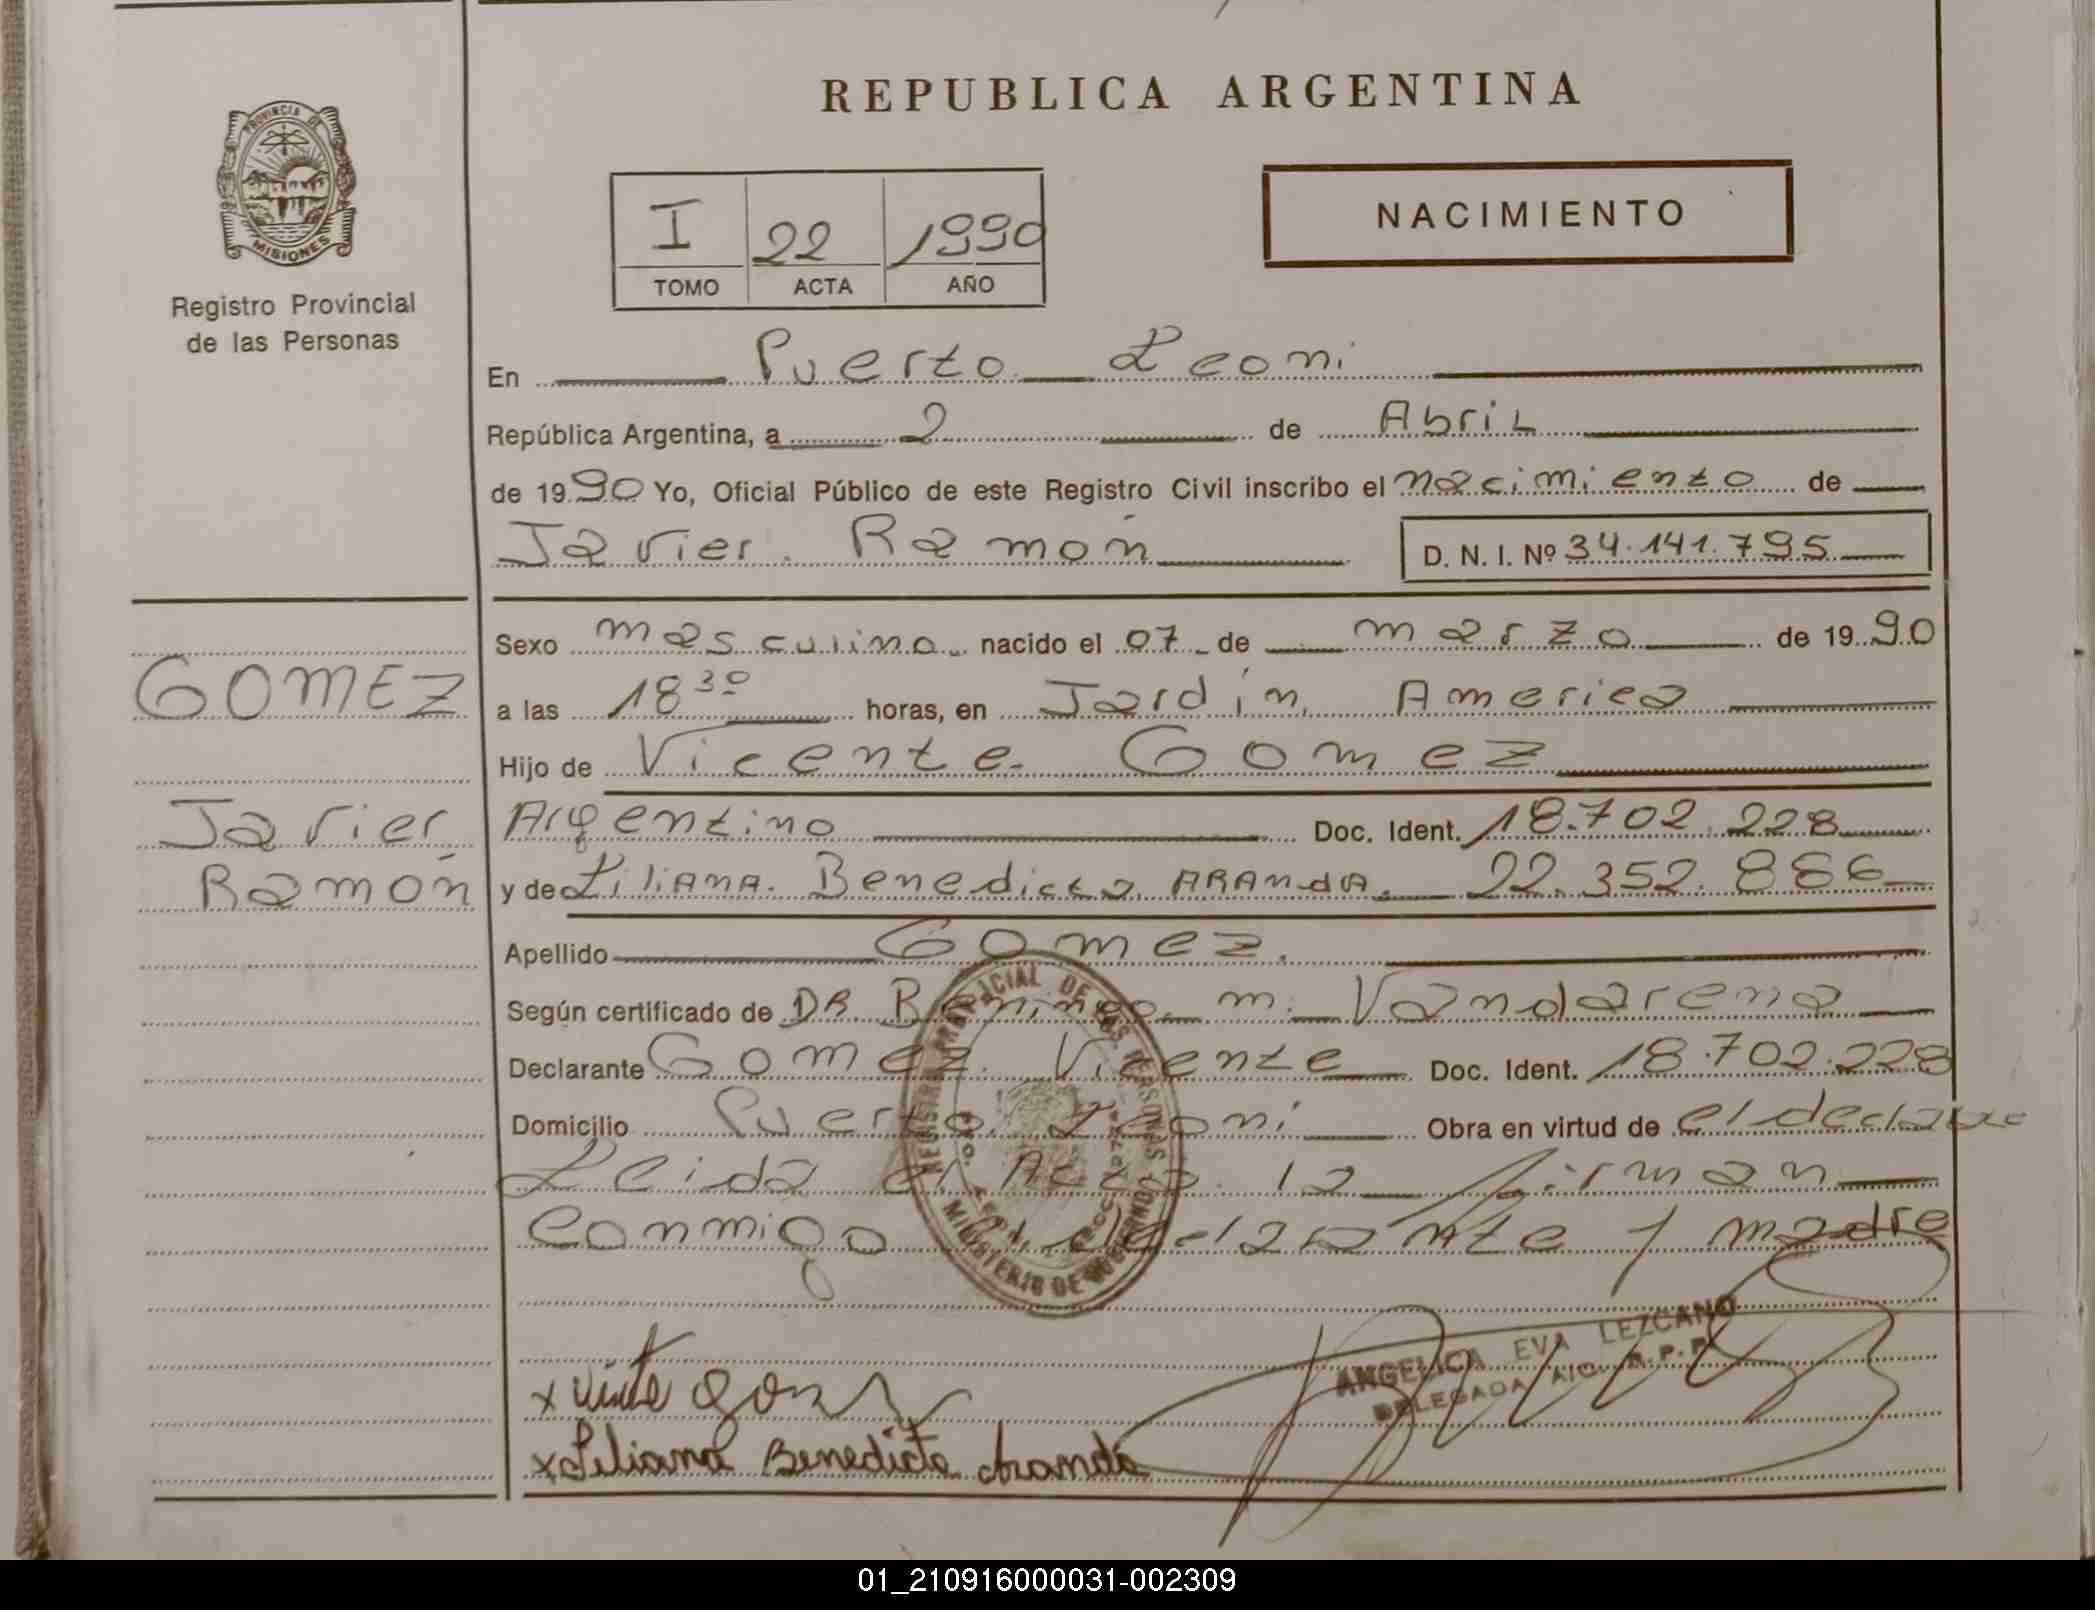 REPUBLICA ARGENTINA
PROVINCIA DE
MISIONES
Registro Provincial
de las Personas
I 22 1990
TOMO ACTA AÑO
NACIMIENTO
En Puerto Leoni
República Argentina, a 2 de Abril
de 1990 Yo, Oficial Público de este Registro Civil inscribo el nacimiento de
Javier Ramón
D. N. I. Nº 34.141.795
GOMEZ
Javier
Ramón
Sexo masculino nacido el 07 de marzo de 1990
a las 18 30 horas, en Jardín America
Hijo de Vicente Gomez
Argentino Doc. Ident. 18.702.228
y de Liliana Benedicta ARANdA 22.352.886
Apellido Gomez
Según certificado de DR. m. Vandarena
Declarante Gomez Vicente Doc. Ident. 18.702.228
Domicilio Puerto Leoni Obra en virtud de el
Leida el Acta la firman
Conmigo el declarante y madre
MINISTERIO DE GOBIERNO
ANGELICA EVA LEZCANO
DELEGADA A/C. R.P.P.
x
x Liliana Benedicta Aranda
01_210916000031-002309